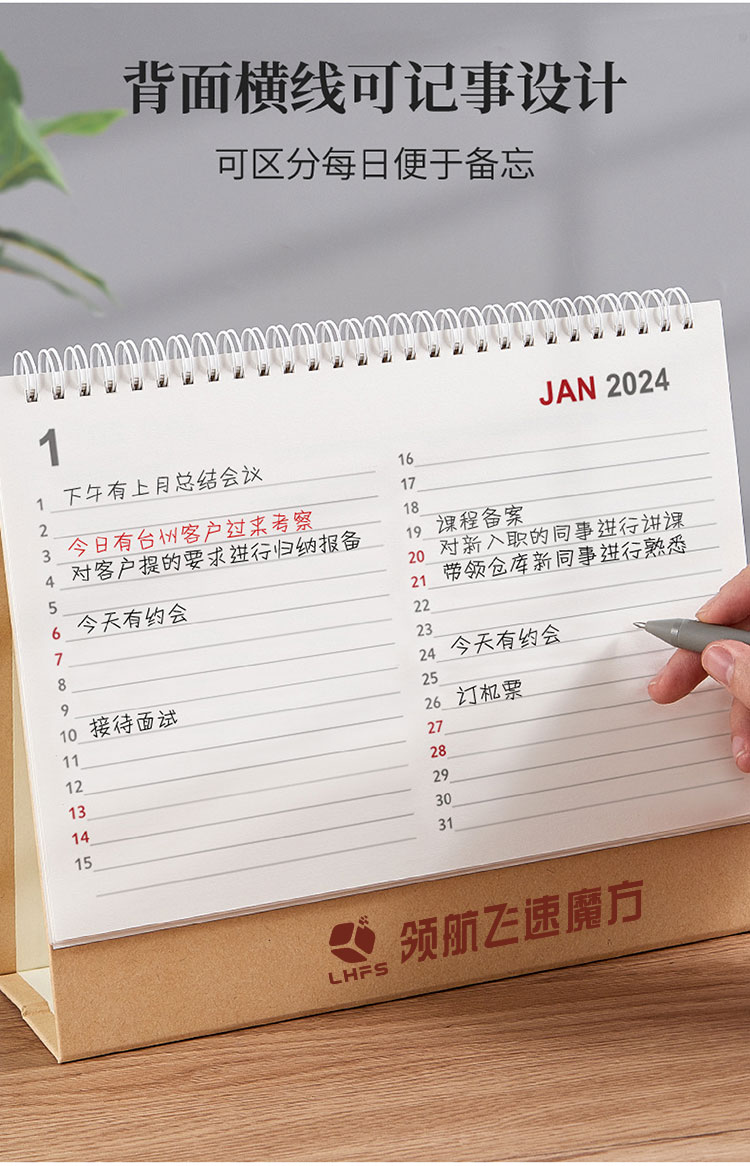 背面横线可记事设计
可区分每日便于备忘
JAN 2024
1
1 下午有上月总结会议
2
3 今日有台州客户过来考察
4 对客户提的要求进行归纳报备
5
6 今天有约会
7
8
9
10 接待面试
11
12
13
14
15
16
17
18
19 课程备案
20 对新入职的同事进行讲课
21 带领仓库新同事进行熟悉
22
23
24 今天有约会
25
26 订机票
27
28
29
30
31
LHFS 领航飞速魔方